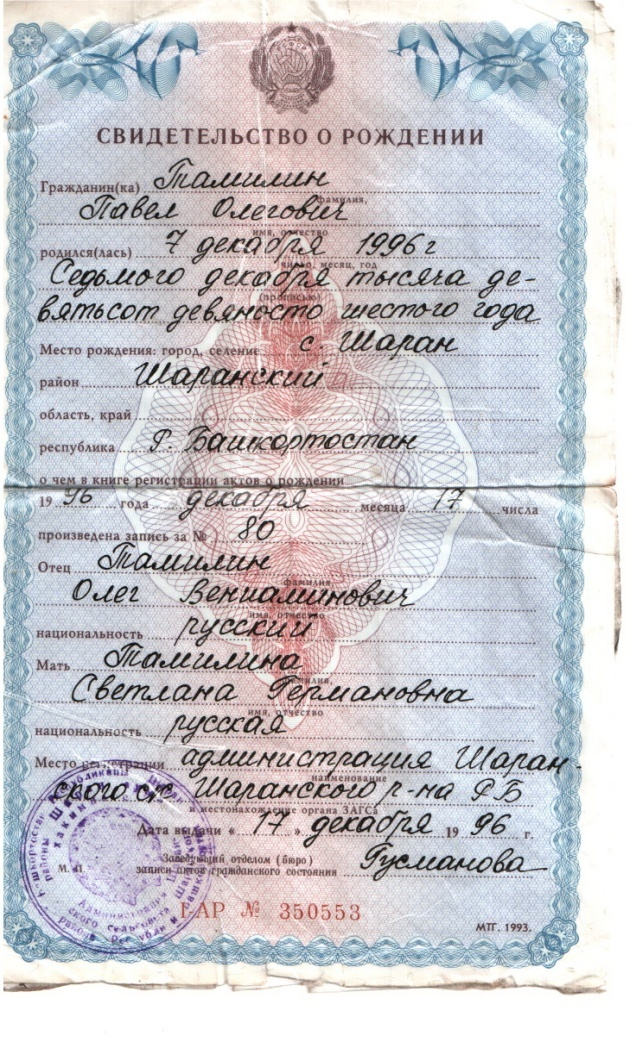 СВИДЕТЕЛЬСТВО О РОЖДЕНИИ
Гражданин(ка) Тамилин
фамилия,
Павел Олегович
имя, отчество
родился(лась) 7 декабря 1996 г
число, месяц, год
Седьмого декабря тысяча де-
(прописью)
вятьсот девяносто шестого года
Место рождения: город, селение с Шаран
район Шаранский
область, край
республика Р Башкортостан
о чем в книге регистрации актов о рождении
19 96 года декабря месяца 17 числа
произведена запись за № 80
Отец Тамилин
фамилия
Олег Вениаминович
имя, отчество
национальность русский
Мать Тамилина
фамилия,
Светлана Германовна
имя, отчество
национальность русская
Место регистрации администрация Шаран-
наименование
ского с/с Шаранского р-на РБ
и местонахождение органа ЗАГСа
Дата выдачи « 17 » декабря 19 96 г.
Заведующий отделом (бюро)
записи актов гражданского состояния Гусманова
М. П.
ЕАР № 350553
МТГ. 1993.